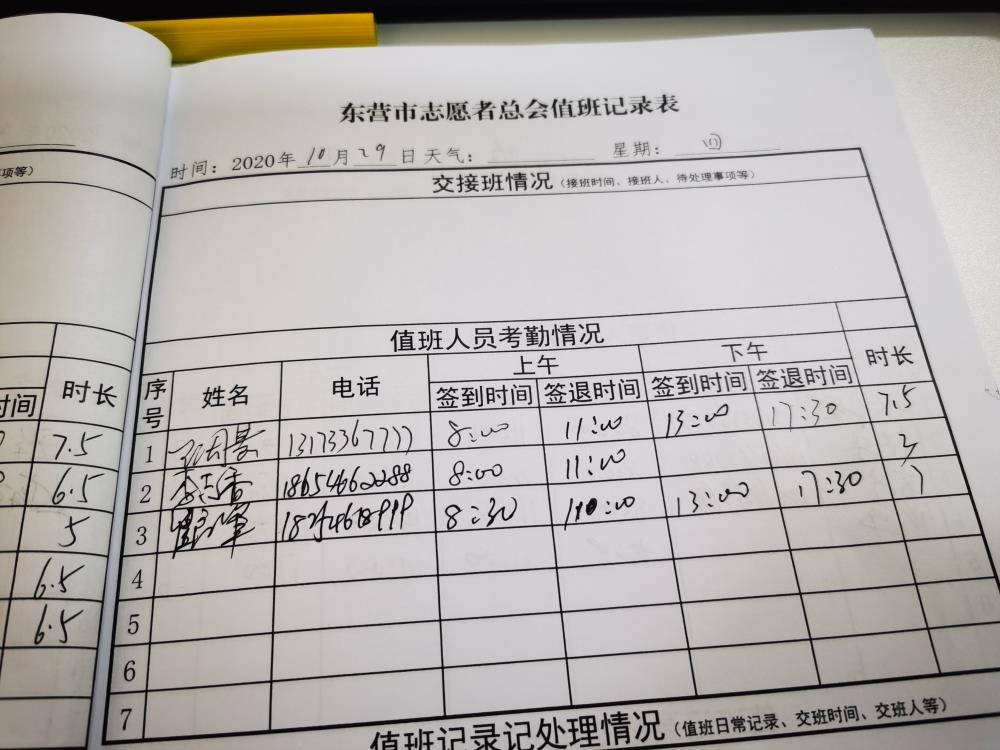 东营市志愿者总会值班记录表
时间：2020年 10 月 29 日 天气： 星期： 四
交接班情况（接班时间、接班人、待处理事项等）
项等）
值班人员考勤情况
序号 姓名 电话 上午 下午 时长
签到时间 签退时间 签到时间 签退时间
时间 时长
1 13173367777 8:00 11:00 13:00 17:30 7.5
7.5
2 18654660288 8:00 11:00 3
6.5
3 8:30 11:00 13:00 17:30 7
5
4
6.5
5
6.5
6
7
值班记录记处理情况（值班日常记录、交班时间、交班人等）